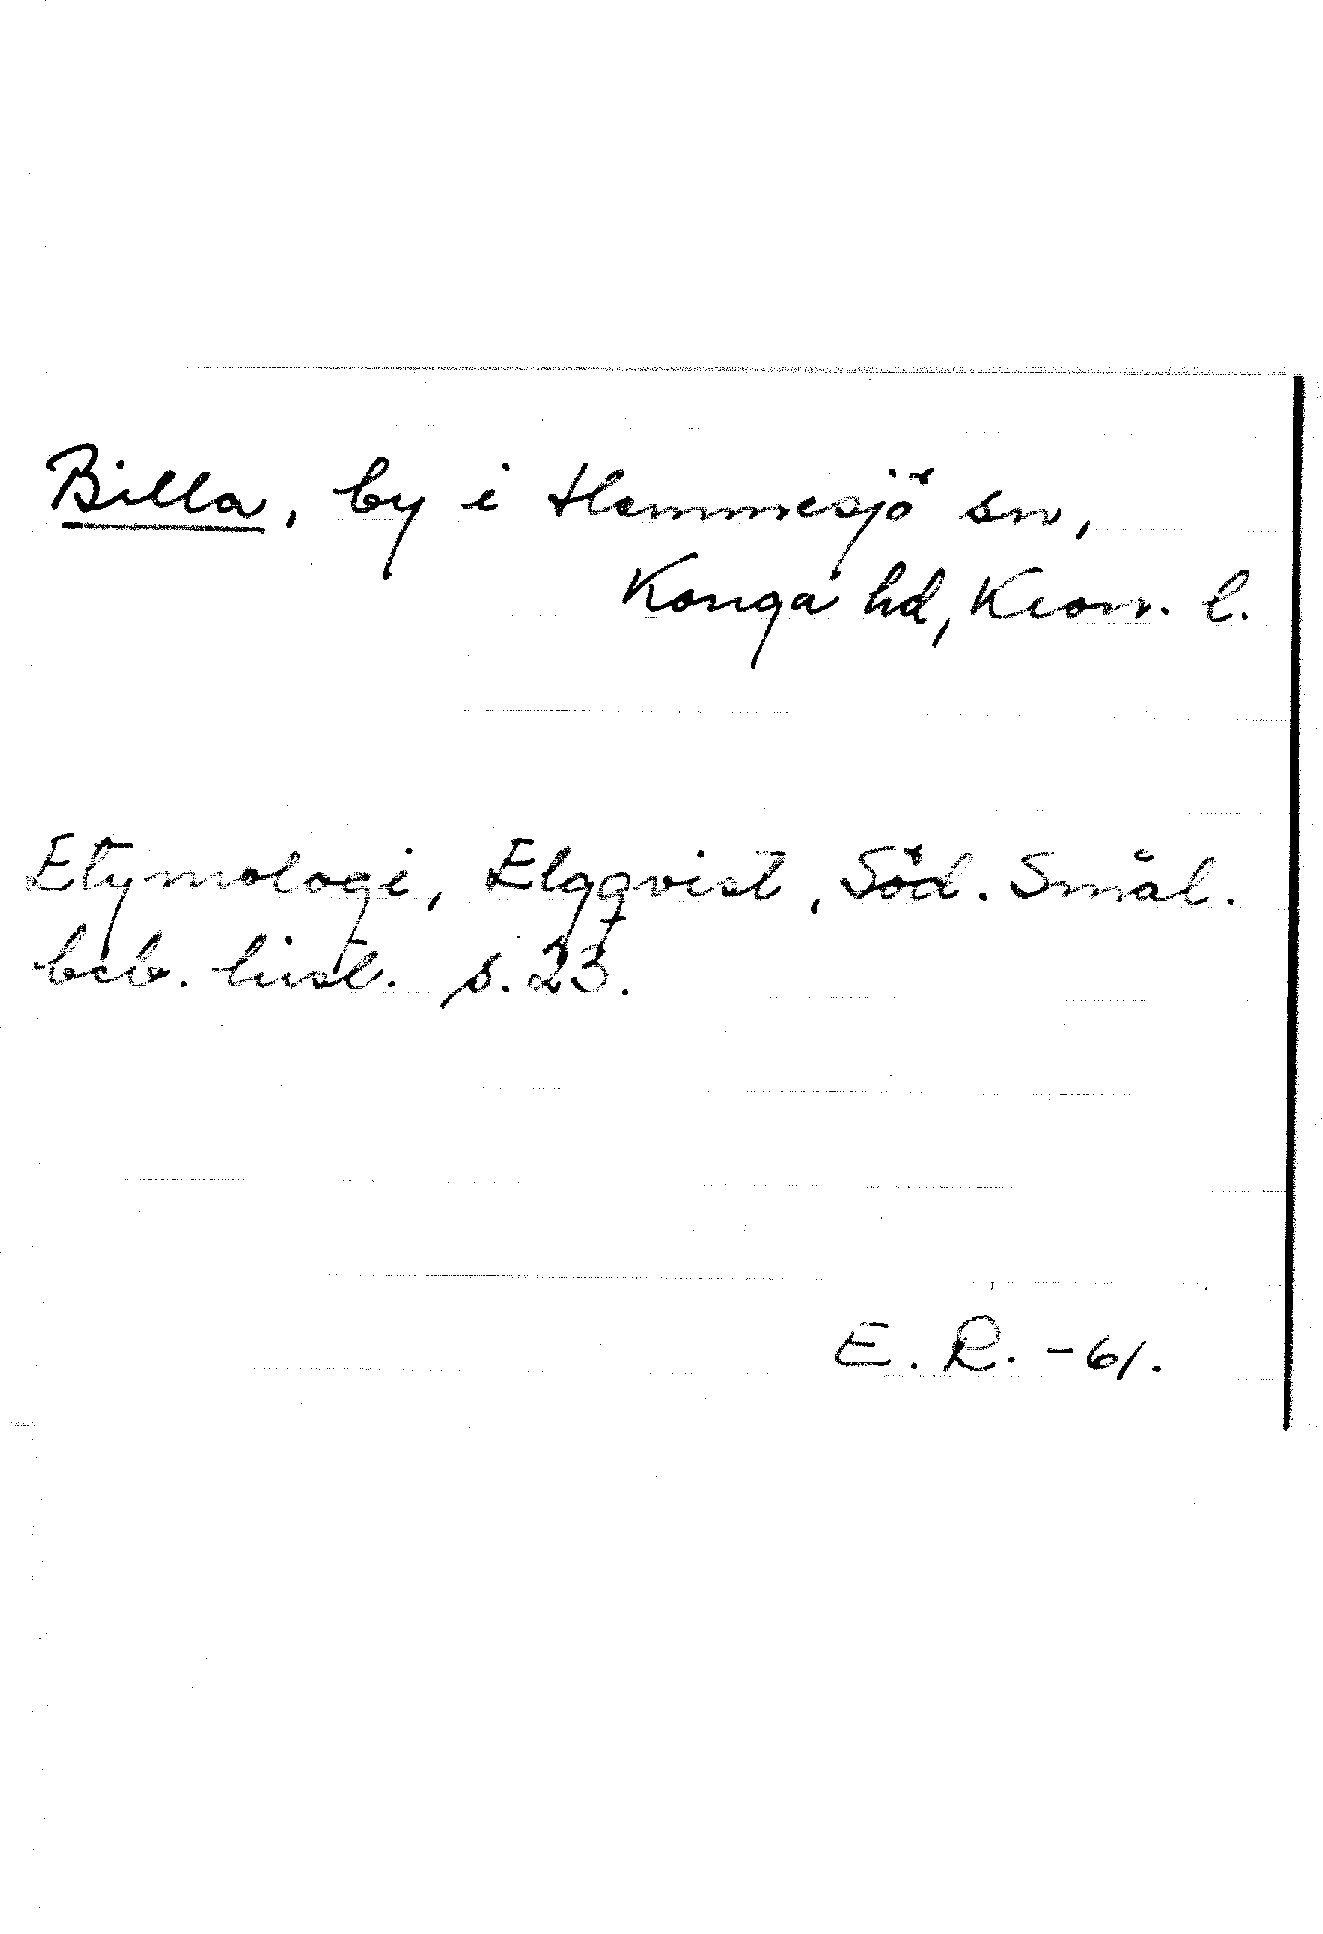 Billa, by i Hemmesjö sn,
Konga hd, Kron. l.
Etymologi, Elgqvist, Söd. Smål.
beb. hist. s. 23.
E. R. -61.